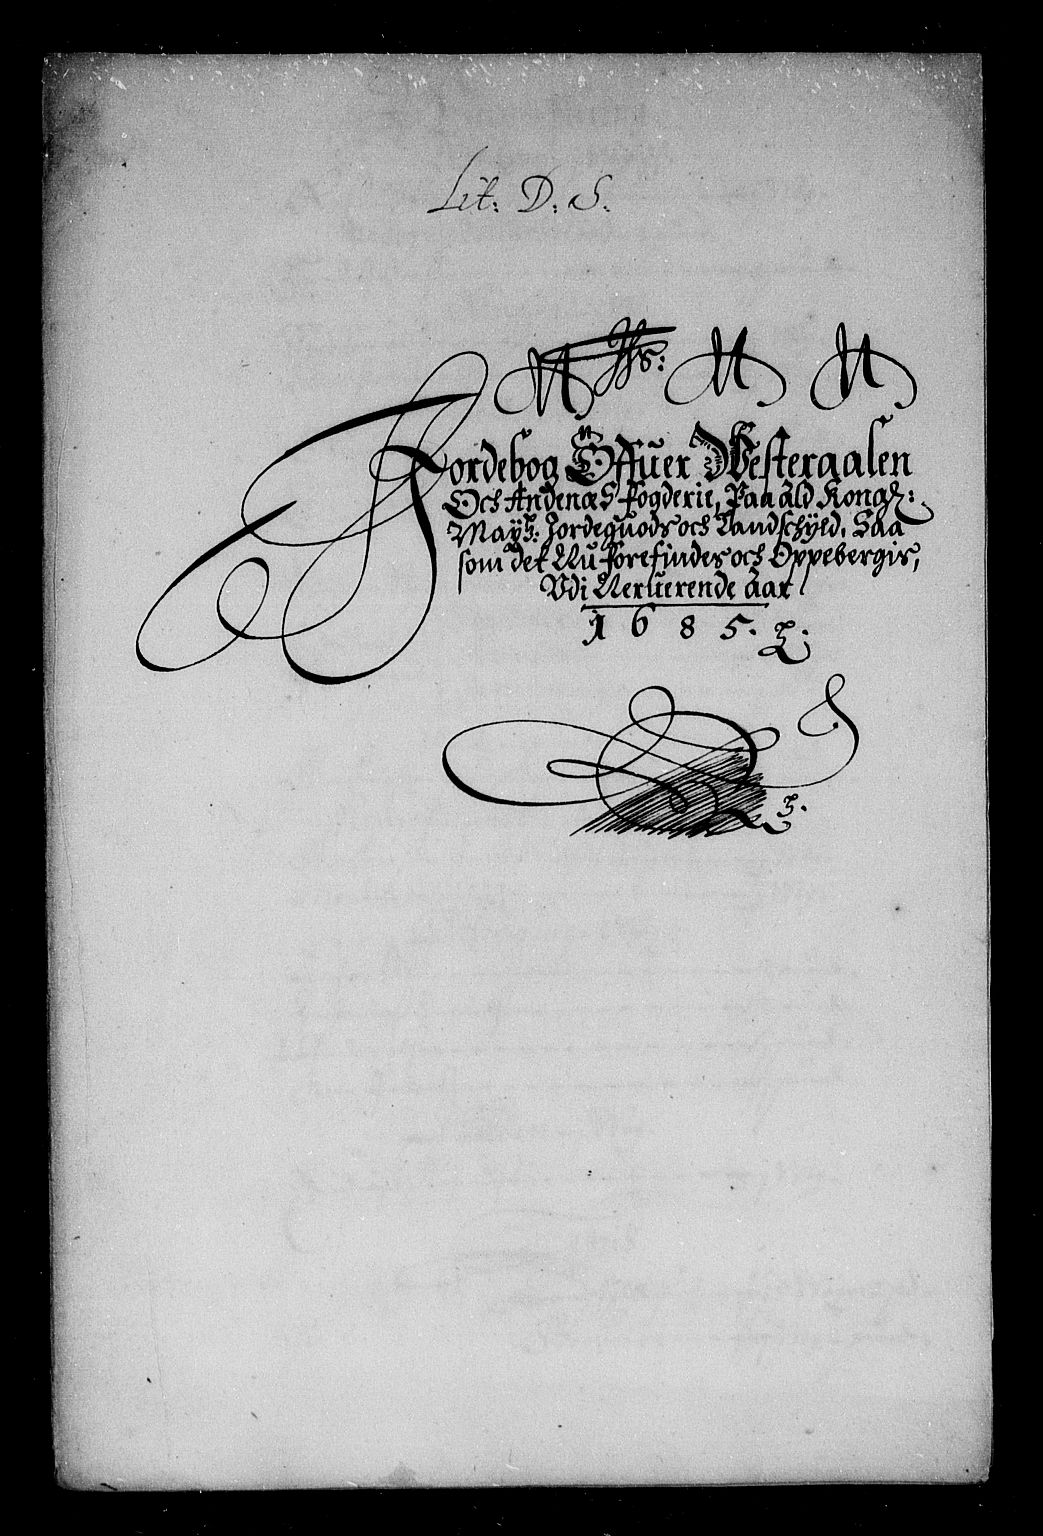 Lit: D: S:
Jordebog Offuer Westeraalen
Och Andenæs Fogderie, Paa ald Kongl:
Mayts: Jordeguods och Landschyld. Saa
som det Nu forefindes och Oppebergis,
Udi Neruerende Aar
1685.